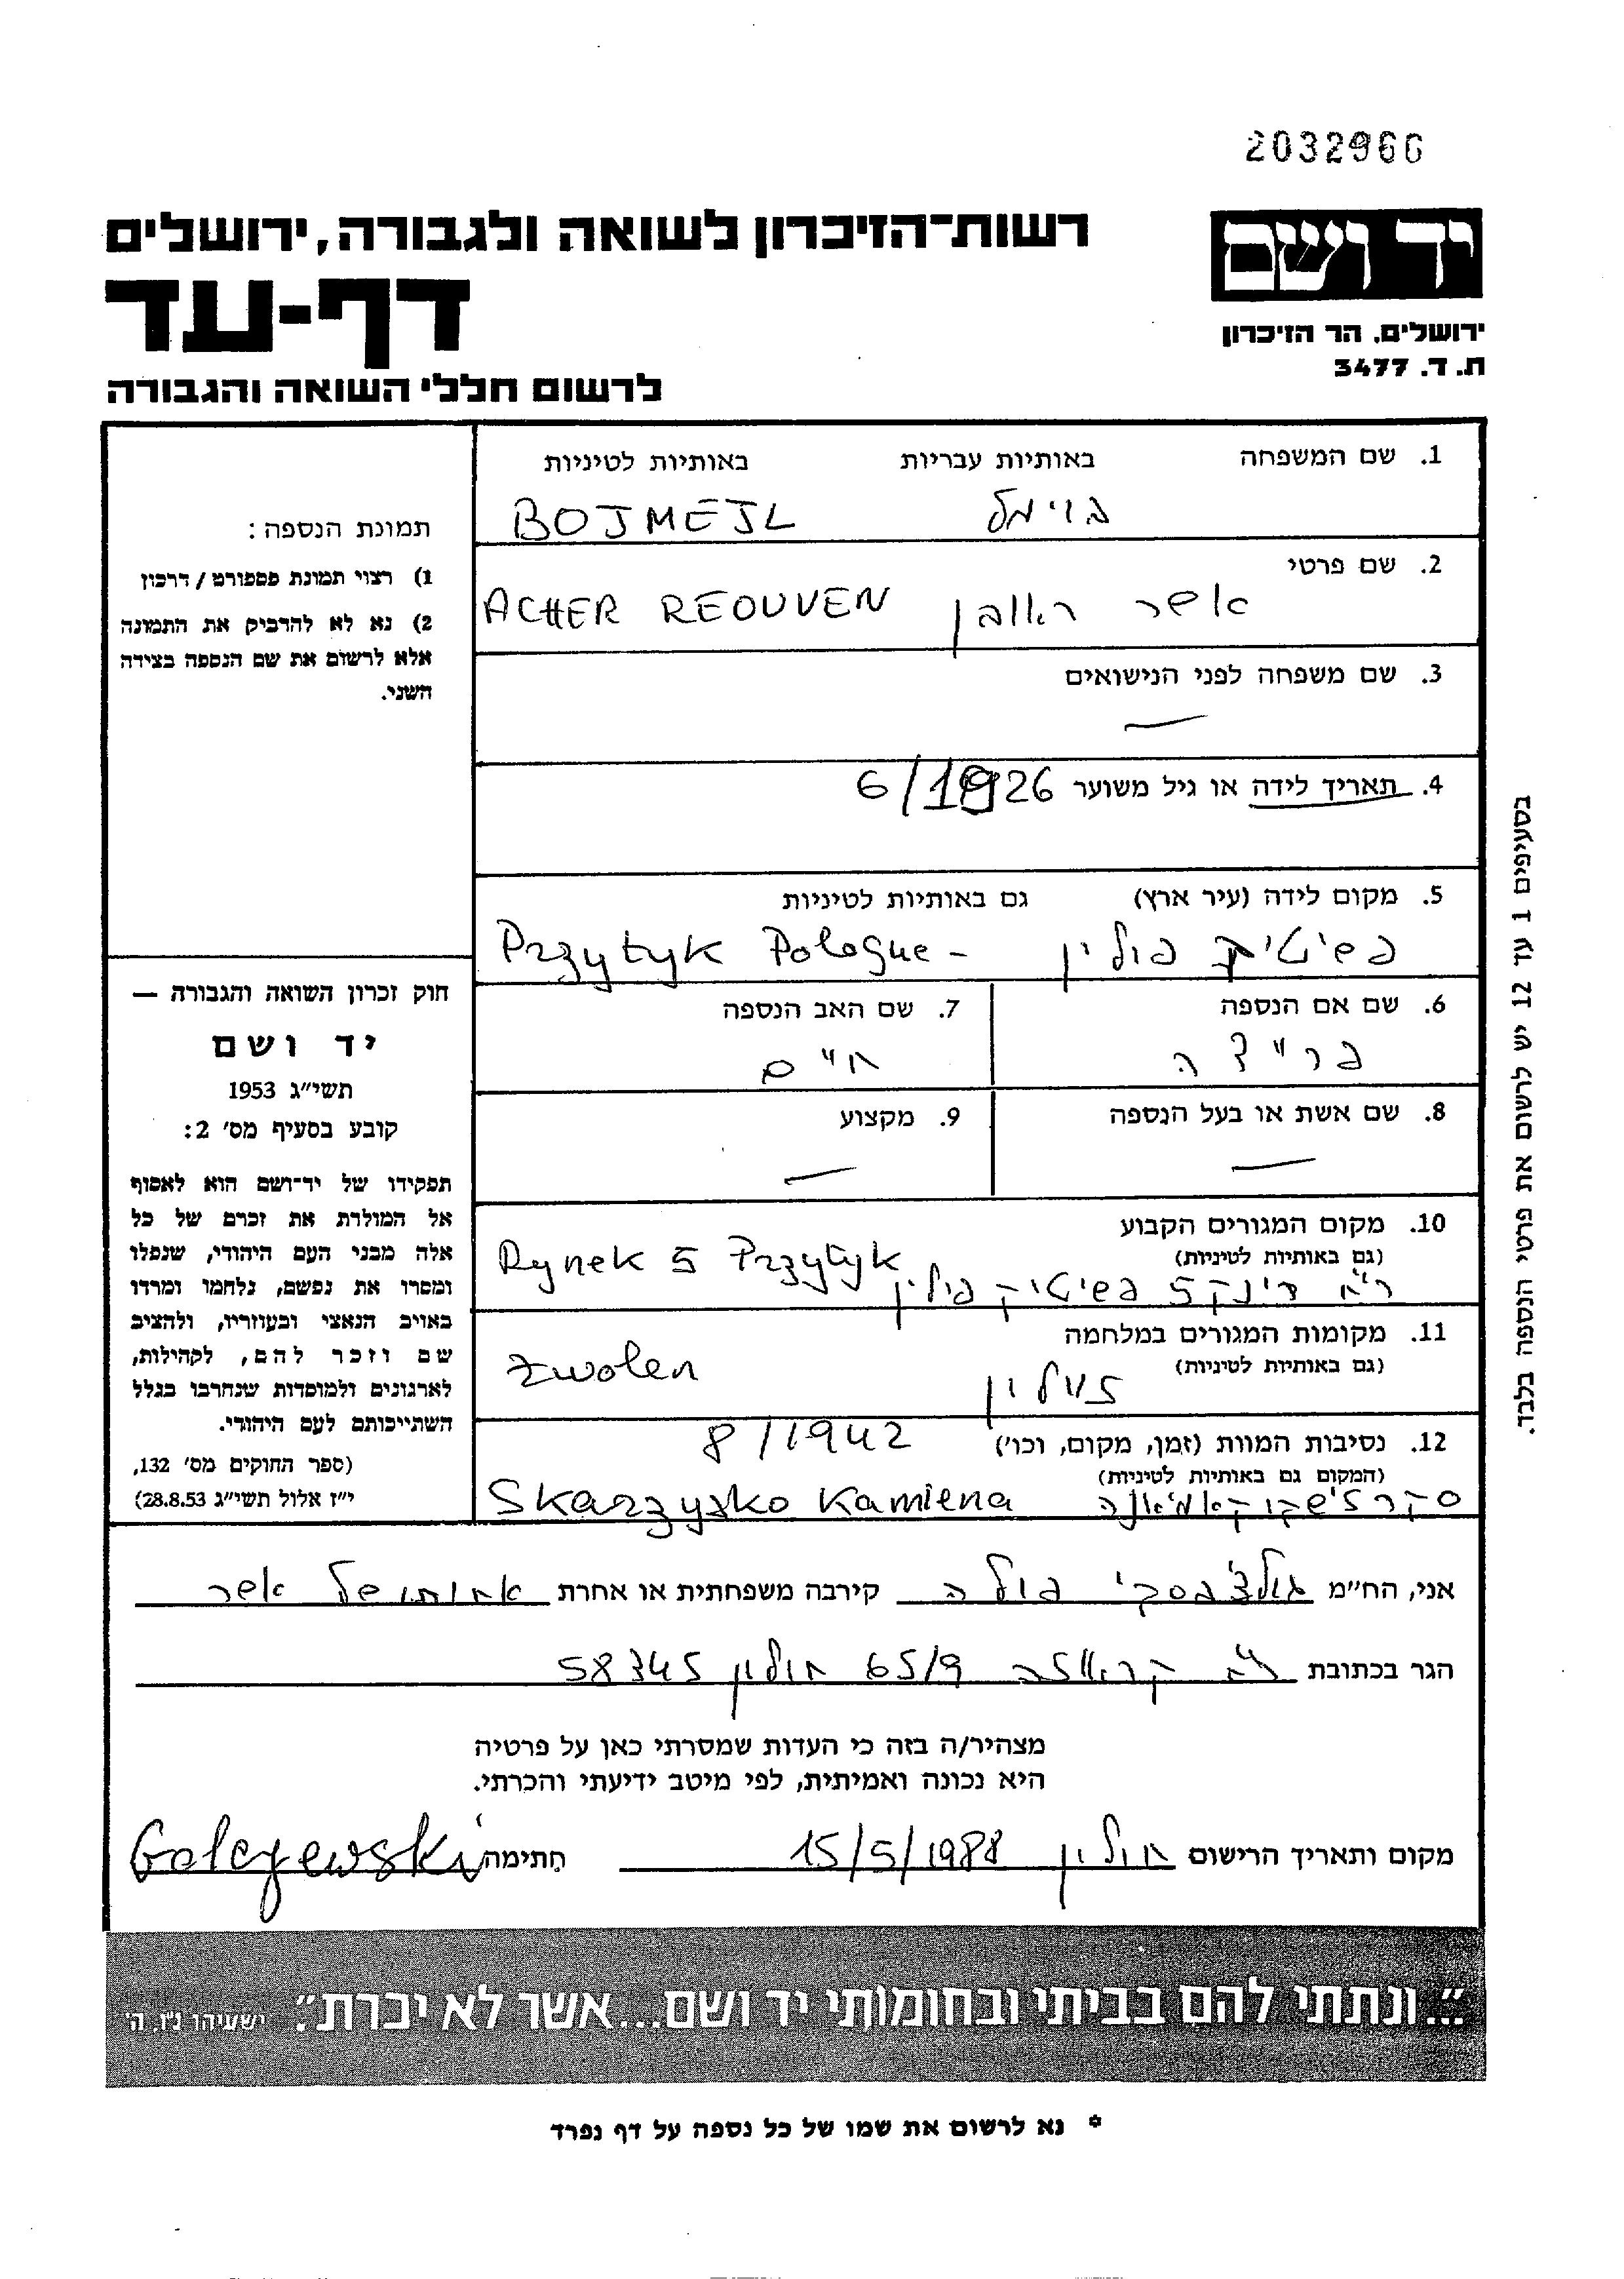 2032966
יד ושם
ירושלים, הר הזיכרון
ת. ד. 3477
רשות־הזיכרון לשואה ולגבורה, ירושלים
דף-עד
לרשום חללי השואה והגבורה
1. שם המשפחה באותיות עבריות באותיות לטיניות
בוימל BOJMEJL
2. שם פרטי
אשר ראובן ACHER REOUVEN
3. שם משפחה לפני הנישואים
—
4. תאריך לידה או גיל משוער 6/1926
5. מקום לידה (עיר ארץ) גם באותיות לטיניות
פשיטיק פולין Przytyk Pologne -
6. שם אם הנספה
פריידה
7. שם האב הנספה
חיים
8. שם אשת או בעל הנספה
—
9. מקצוע
—
10. מקום המגורים הקבוע
(גם באותיות לטיניות)
Rynek 5 Przytyk
רח' רינק 5 פשיטיק פולין
11. מקומות המגורים במלחמה
(גם באותיות לטיניות)
Zwolen
זוולין
12. נסיבות המוות (זמן, מקום, וכו') 8/1942
(המקום גם באותיות לטיניות)
Skarzyzko Kamiena
תמונת הנספה:
1) רצוי תמונת פספורט / דרכון
2) נא לא להדביק את התמונה
אלא לרשום את שם הנספה בצידה
השני.
חוק זכרון השואה והגבורה —
יד ושם
תשי״ג 1953
קובע בסעיף מס' 2:
תפקידו של יד־ושם הוא לאסוף
אל המולדת את זכרם של כל
אלה מבני העם היהודי, שנפלו
ומסרו את נפשם, נלחמו ומרדו
באויב הנאצי ובעוזריו, ולהציב
שם וזכר להם, לקהילות,
לארגונים ולמוסדות שנחרבו בגלל
השתייכותם לעם היהודי.
(ספר החוקים מס' 132,
י״ז אלול תשי״ג 28.8.53)
בסעיפים 1 עד 12 יש לרשום את פרטי הנספה בלבד.
אני, הח״מ גולצ'בסקי פולה קירבה משפחתית או אחרת אחותו של אשר
הגר בכתובת רח' קראוזה 65/9 חולון 58345
מצהיר/ה בזה כי העדות שמסרתי כאן על פרטיה
היא נכונה ואמיתית, לפי מיטב ידיעתי והכרתי.
מקום ותאריך הרישום חולון 15/5/1988 חתימה Golczewski
״...ונתתי להם בביתי ובחומותי יד ושם...אשר לא יכרת״. ישעיהו נ״ו, ה'
* נא לרשום את שמו של כל נספה על דף נפרד